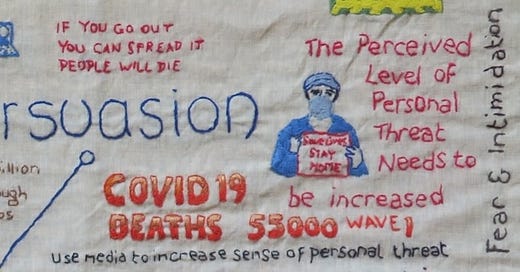 IF YOU GO OUT
YOU CAN SPREAD IT
PEOPLE WILL DIE
The Perceived
Level of
Personal
Threat
Needs to
be increased
rsuasion
Save Lives
STAY
HOME
illion
ough
os
COVID 19
DEATHS 55000 WAVE 1
use media to increase sense of personal threat
Fear & Intimidation